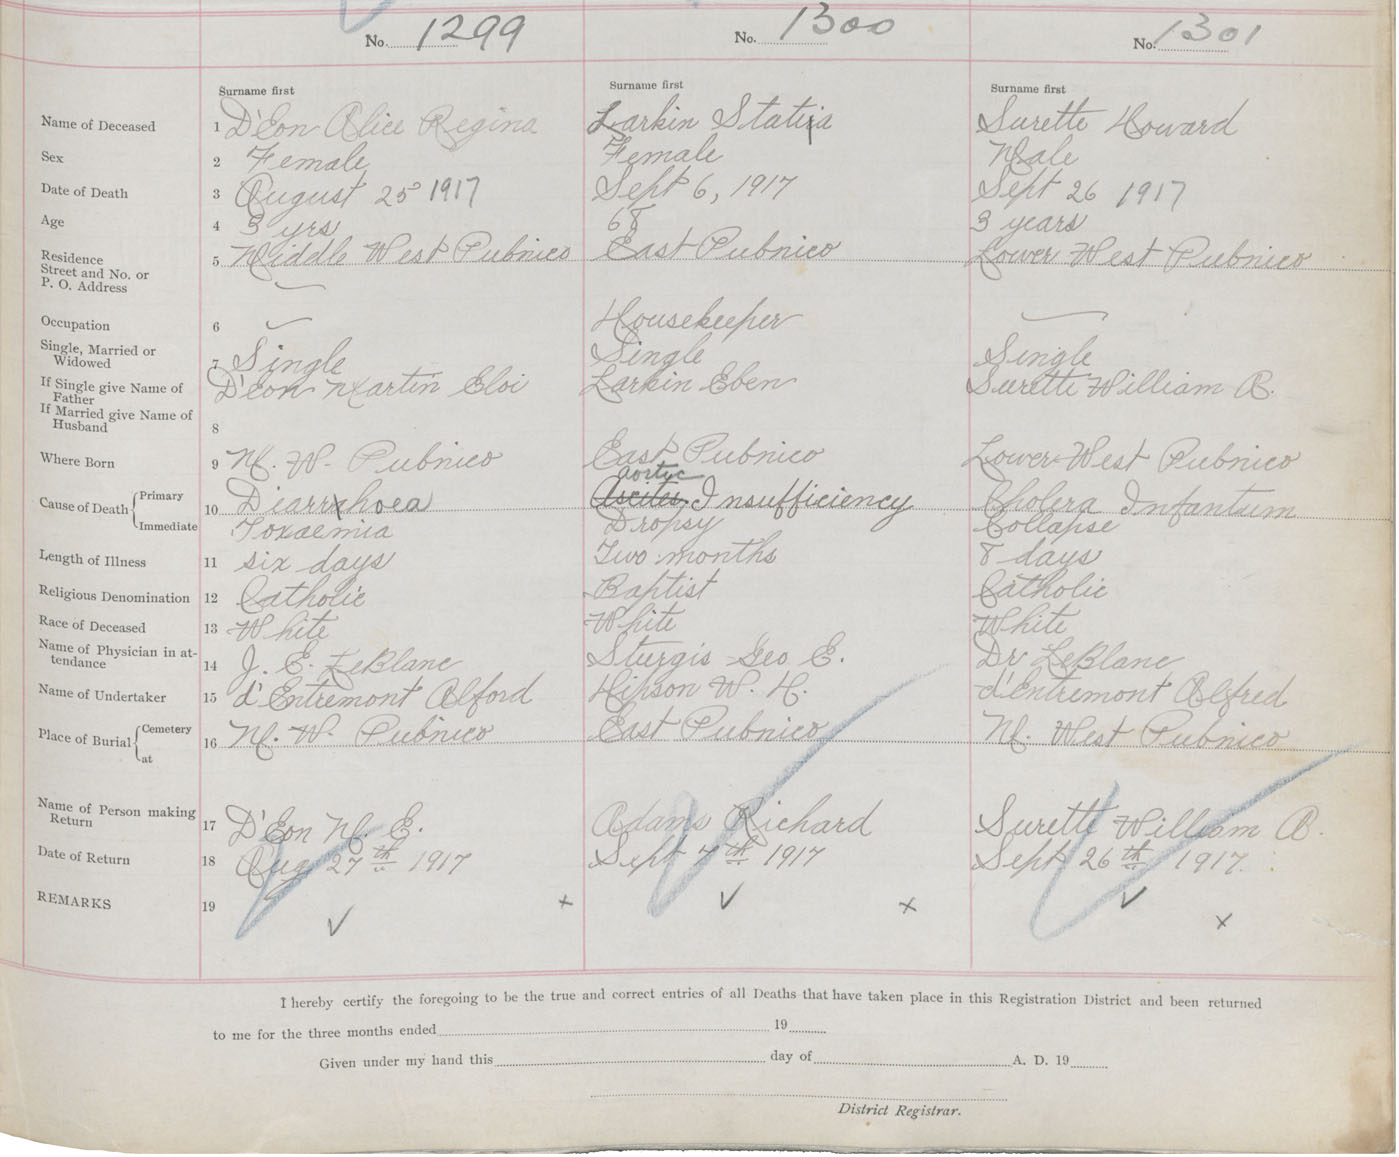 No. 1299 No. 1300 No. 1301
Surname first Surname first Surname first
Name of Deceased 1 D'Eon Alice Regina Larkin Statira Surette Howard
Sex 2 Female Female Male
Date of Death 3 August 25 1917 Sept 6, 1917 Sept 26 1917
Age 4 3 yrs 68 3 years
Residence 5 Middle West Pubnico East Pubnico Lower West Pubnico
Street and No. or
P. O. Address
Occupation 6 Housekeeper
Single, Married or
Widowed 7 Single Single Single
If Single give Name of
Father D'Eon Martin Eloi Larkin Eben Surette William A.
If Married give Name of
Husband 8
Where Born 9 M. W. Pubnico East Pubnico Lower West Pubnico
Aortyc
Cause of Death Primary 10 Diarrhoea Ascites Insufficiency Cholera Infantum
Immediate Toxaemia Dropsy Collapse
Length of Illness 11 six days Two months 8 days
Religious Denomination 12 Catholic Baptist Catholic
Race of Deceased 13 White White White
Name of Physician in at-
tendance 14 J. E. LeBlanc Sturgis Geo E. Dr LeBlanc
Name of Undertaker 15 d'Entremont Alford Hipson W. H. d'Entremont Alfred
Place of Burial Cemetery 16 M. W. Pubnico East Pubnico M. West Pubnico
at
Name of Person making
Return 17 D'Eon M. E. Adams Richard Surette William A.
Date of Return 18 Aug 27th 1917 Sept 7th 1917 Sept 26th 1917.
REMARKS 19
I hereby certify the foregoing to be the true and correct entries of all Deaths that have taken place in this Registration District and been returned
to me for the three months ended 19
Given under my hand this day of A. D. 19
District Registrar.